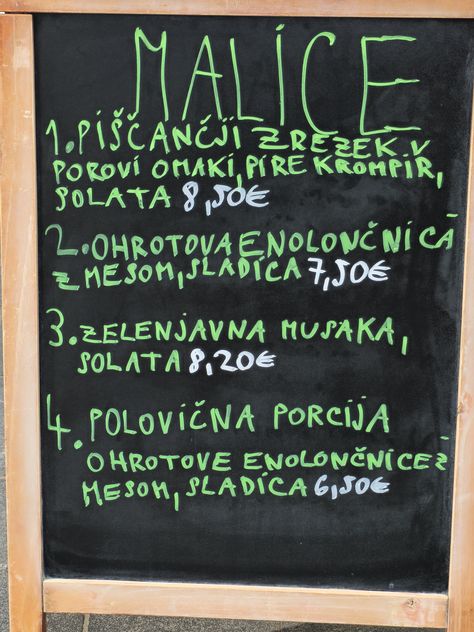 MALICE
1. PIŠČANČJI ZREZEK V
POROVI OMAKI, PIRE KROMPIR,
SOLATA 8,50€
2. OHROTOVA ENOLONČNICA
Z MESOM, SLADICA 7,50€
3. ZELENJAVNA MUSAKA,
SOLATA 8,20€
4. POLOVIČNA PORCIJA
OHROTOVE ENOLONČNICE Z
MESOM, SLADICA 6,50€